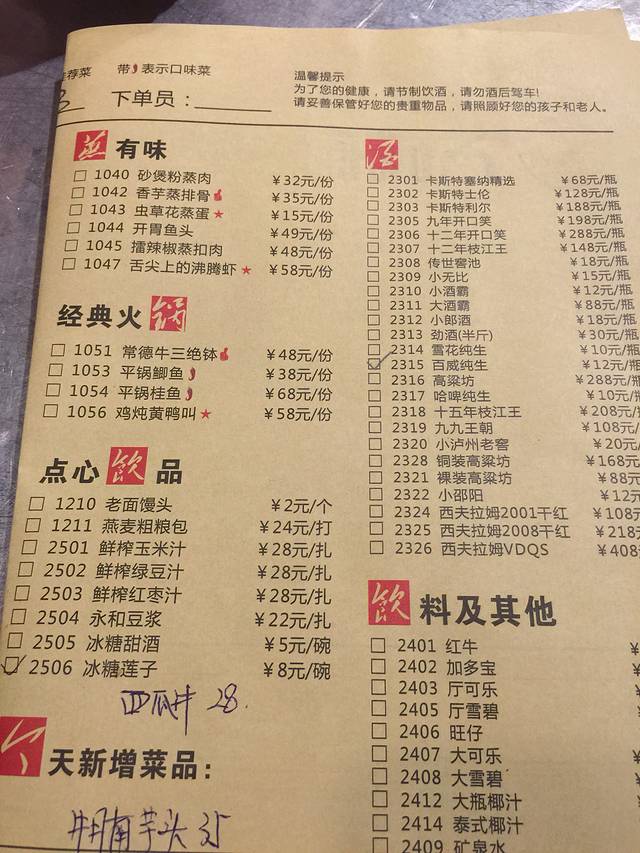 荐菜 带 表示口味菜
下单员：
温馨提示
为了您的健康，请节制饮酒，请勿酒后驾车！
请妥善保管好您的贵重物品，请照顾好您的孩子和老人。
蒸有味
1040 砂煲粉蒸肉 ￥32元/份
1042 香芋蒸排骨 ￥35元/份
1043 虫草花蒸蛋★ ￥15元/份
1044 开胃鱼头 ￥49元/份
1045 擂辣椒蒸扣肉 ￥48元/份
1047 舌尖上的沸腾虾★ ￥58元/份
经典火锅
1051 常德牛三绝钵 ￥48元/份
1053 平锅鲫鱼 ￥38元/份
1054 平锅桂鱼 ￥68元/份
1056 鸡炖黄鸭叫★ ￥58元/份
点心飲品
1210 老面馒头 ￥2元/个
1211 燕麦粗粮包 ￥24元/打
2501 鲜榨玉米汁 ￥28元/扎
2502 鲜榨绿豆汁 ￥28元/扎
2503 鲜榨红枣汁 ￥28元/扎
2504 永和豆浆 ￥22元/扎
2505 冰糖甜酒 ￥5元/碗
2506 冰糖莲子 ￥8元/碗
西瓜汁 28.
今天新增菜品：
芋头 35
酒
2301 卡斯特塞纳精选 ￥68元/瓶
2302 卡斯特士伦 ￥128元/瓶
2303 卡斯特利尔 ￥188元/瓶
2305 九年开口笑 ￥198元/瓶
2306 十二年开口笑 ￥288元/瓶
2307 十二年枝江王 ￥148元/瓶
2308 传世窖池 ￥18元/瓶
2309 小无比 ￥15元/瓶
2310 小酒霸 ￥12元/瓶
2311 大酒霸 ￥88元/瓶
2312 小郎酒 ￥18元/瓶
2313 劲酒(半斤) ￥30元/瓶
2314 雪花纯生 ￥10元/瓶
2315 百威纯生 ￥12元/瓶
2316 高粱坊 ￥288元/瓶
2317 哈啤纯生 ￥10元/
2318 十五年枝江王 ￥208元/
2319 九九王朝 ￥108元/
2320 小泸州老窖 ￥20元/
2328 铜装高粱坊 ￥168元
2321 裸装高粱坊 ￥88元
2322 小邵阳 ￥12元
2324 西夫拉姆2001干红 ￥108元
2325 西夫拉姆2008干红 ￥218
2326 西夫拉姆VDQS ￥408
飲料及其他
2401 红牛 ￥
2402 加多宝 ￥
2403 厅可乐 ￥
2405 厅雪碧 ￥
2406 旺仔 ￥
2407 大可乐
2408 大雪碧
2412 大瓶椰汁
2414 泰式椰汁
2409 矿泉水